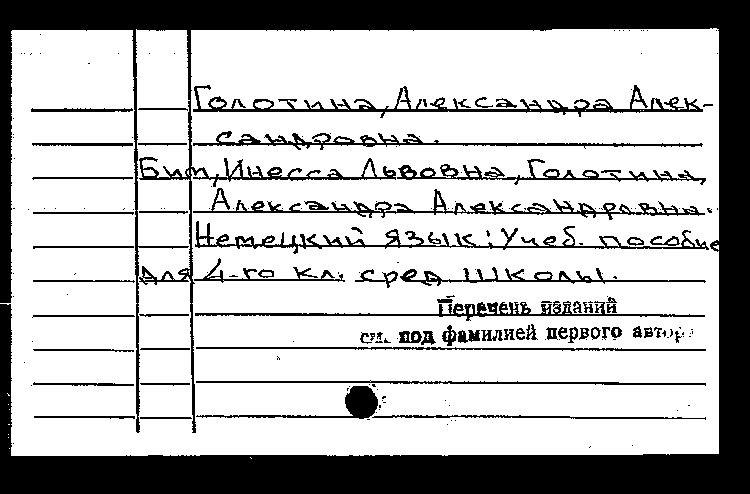 Голотина, Александра Алек-
сандровна.
Бим, Инесса Львовна, Голотина,
Александра Александровна.
Немецкий язык: Учеб. пособие
для 4-го кл. сред школы.
Перечень изданий
см. под фамилией первого автора